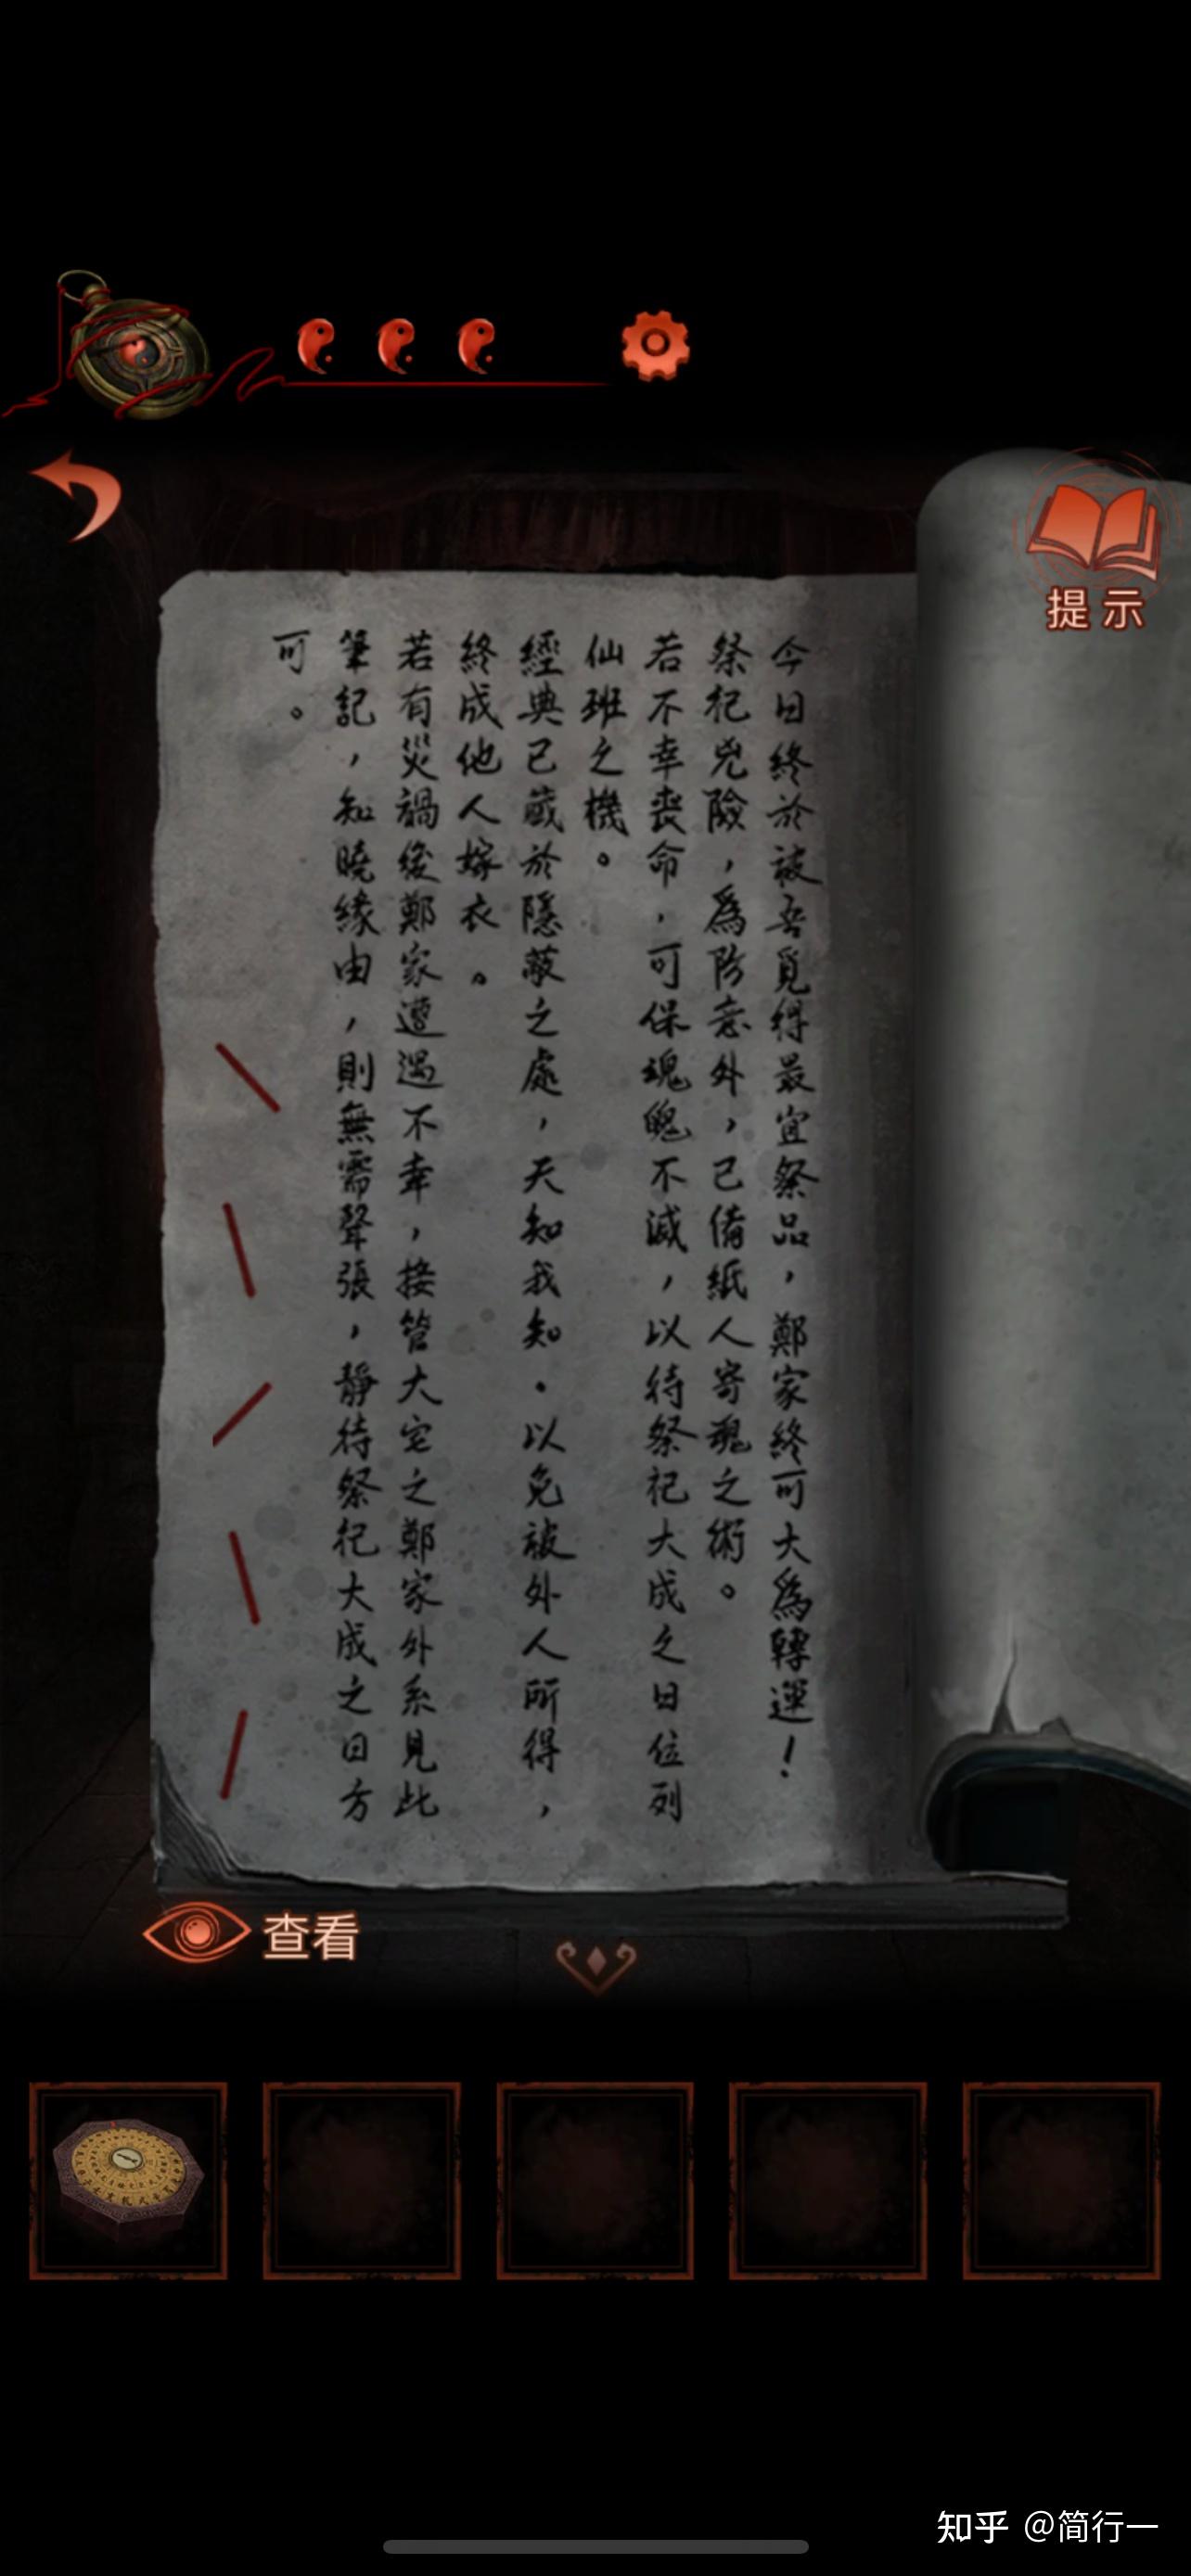 提示
今日終於被吾覓得最宜祭品，鄭家終可大為轉運！
祭祀兇險，為防意外，已備紙人寄魂之術。
若不幸喪命，可保魂魄不滅，以待祭祀大成之日位列
仙班之機。
經典已藏於隱蔽之處，天知我知。以免被外人所得，
終成他人嫁衣。
若有災禍後鄭家遭遇不幸，接管大宅之鄭家外系見此
筆記，知曉緣由，則無需聲張，靜待祭祀大成之日方
可。
查看
知乎 @简行一